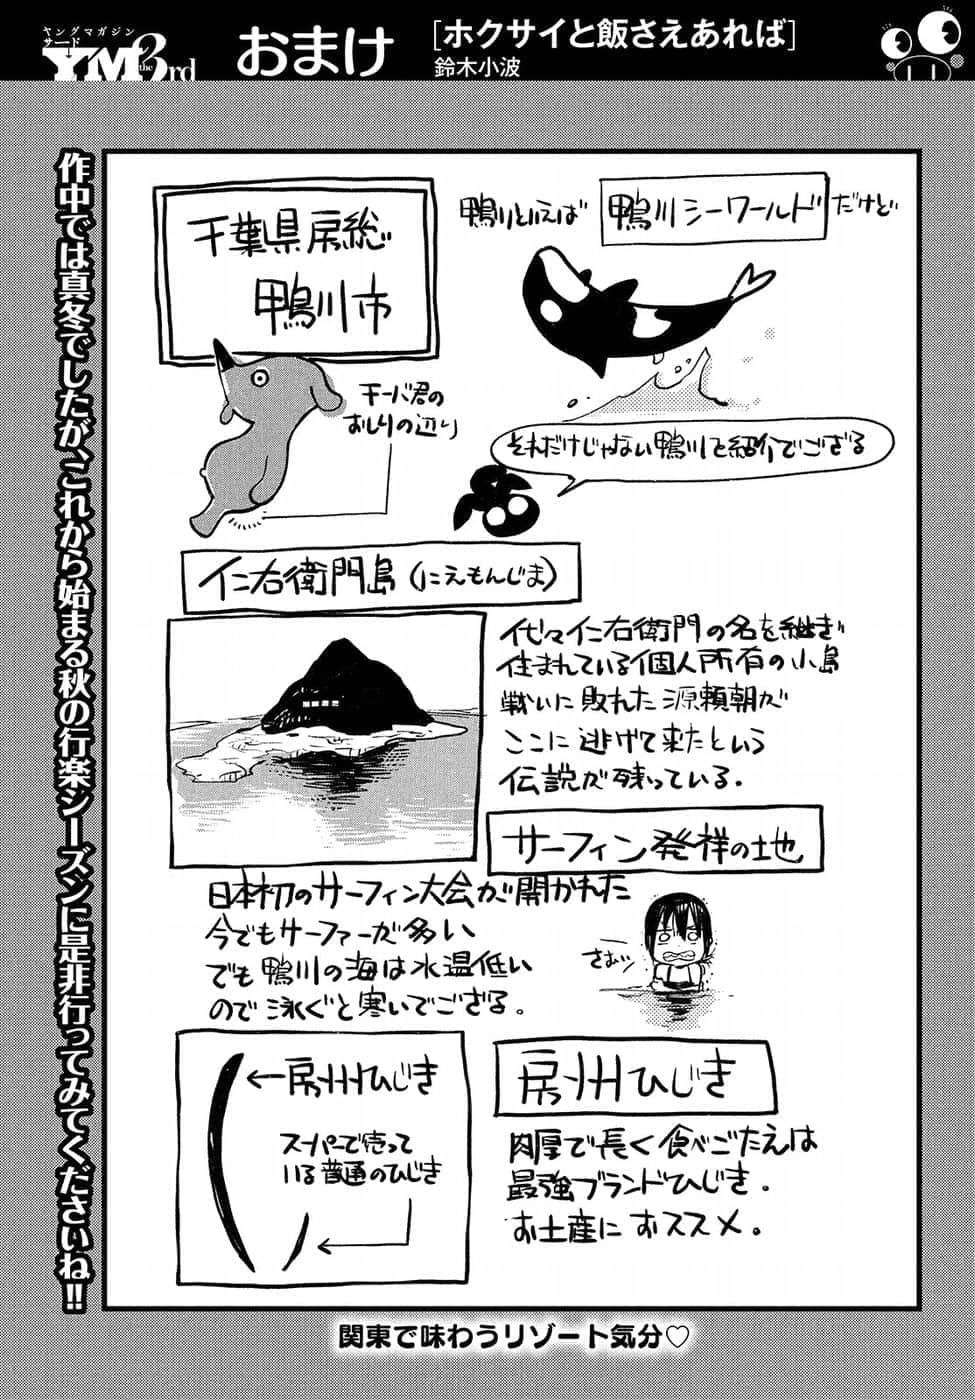 ヤングマガジン
サード
YM the 3rd
おまけ
[ホクサイと飯さえあれば]
鈴木小波
作中では真冬でしたが、これから始まる秋の行楽シーズンに是非行ってみてくださいね!!
千葉県房総
鴨川市
チーバ君の
おしりの辺り
鴨川といえば 鴨川シーワールド だけど
それだけじゃない鴨川を紹介でござる
仁右衛門島(にえもんじま)
代々仁右衛門の名を継ぎ
住まれている個人所有の小島
戦いに敗れた源頼朝が
ここに逃げて来たという
伝説が残っている.
サーフィン発祥の地
日本初のサーフィン大会が開かれた
今でもサーファーが多い
でも鴨川の海は水温低い
ので泳ぐと寒いでござる。
さむッ
房州ひじき
肉厚で長く食べごたえは
最強ブランドひじき。
お土産にオススメ。
←房州ひじき
スーパーで売って
いる普通のひじき
関東で味わうリゾート気分♡